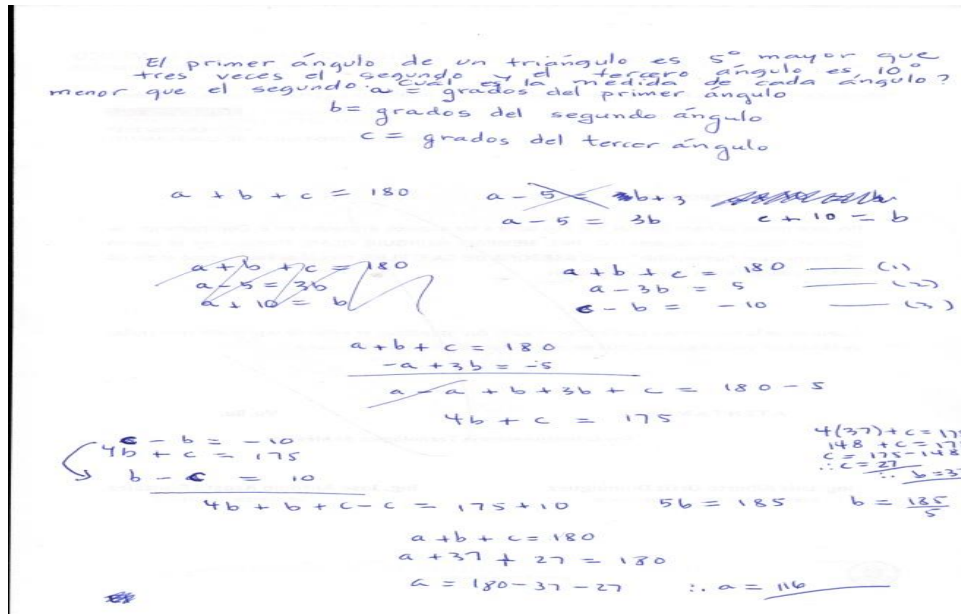 El primer ángulo de un triángulo es 5° mayor que
tres veces el segundo y el tercero ángulo es 10°
menor que el segundo. cuál es la medida de cada ángulo?
a = grados del primer ángulo
b = grados del segundo ángulo
c = grados del tercer ángulo
a + b + c = 180
a - 5 = b + 3
a - 5 = 3b
c + 10 = b
a + b + c = 180
a - 5 = 3b
a + 10 = b
a + b + c = 180 — (1)
a - 3b = 5 — (2)
c - b = -10 — (3)
a + b + c = 180
-a + 3b = -5
a - a + b + 3b + c = 180 - 5
4b + c = 175
c - b = -10
4b + c = 175
b - c = 10
4b + b + c - c = 175 + 10
5b = 185
b = 185/5
4(37) + c = 17
148 + c = 17
c = 175 - 148
∴ c = 27
∴ b = 3
a + b + c = 180
a + 37 + 27 = 180
a = 180 - 37 - 27
∴ a = 116